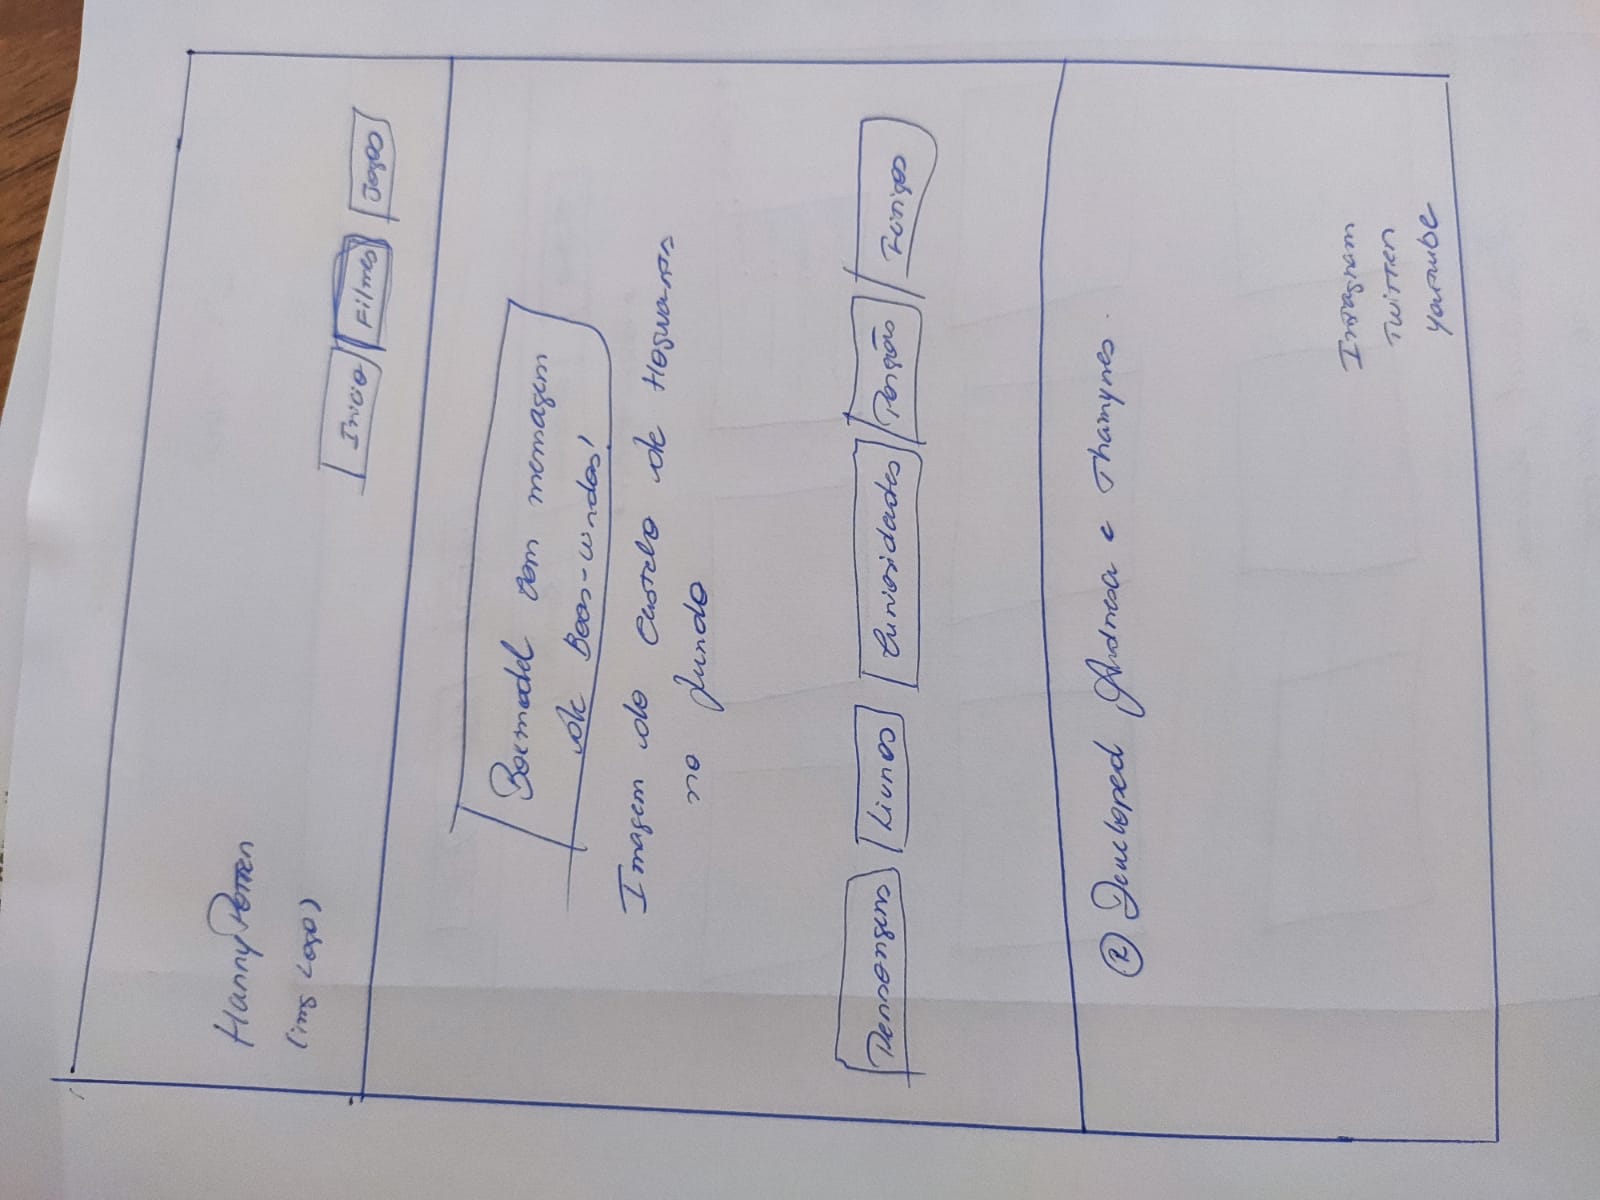 Harry Potter
(img Logo)
Inicio Filmes Jogos
Boxmodel com mensagem
de Boas-vindas!
Imagem do castelo de Hogwarts
no fundo
Personagens Livros Curiosidades Porções Feitiços
® Developed Andresa e Thamyres.
Instagram
Twitter
Youtube